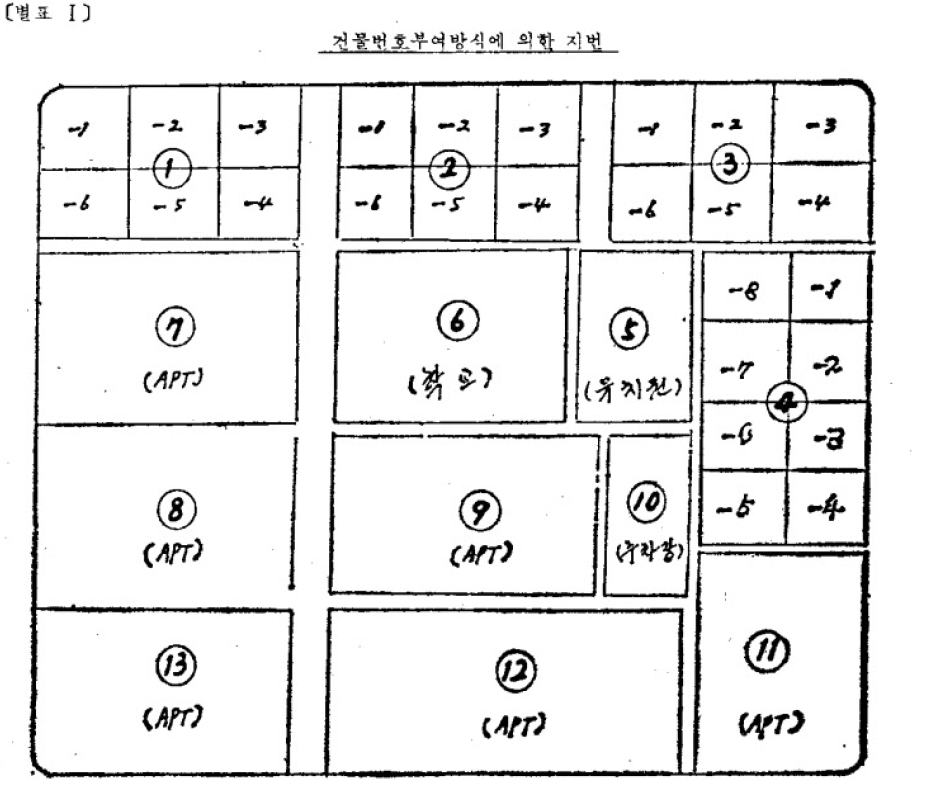 〔별표 I〕
건물번호부여방식에 의한 지번
-1 -2 -3
①
-6 -5 -4
-1 -2 -3
②
-6 -5 -4
-1 -2 -3
③
-6 -5 -4
⑦
(APT)
⑥
(학교)
⑤
(유치원)
-8 -1
-7 -2
④
-6 -3
-5 -4
⑧
(APT)
⑨
(APT)
⑩
(주차장)
⑬
(APT)
⑫
(APT)
⑪
(APT)